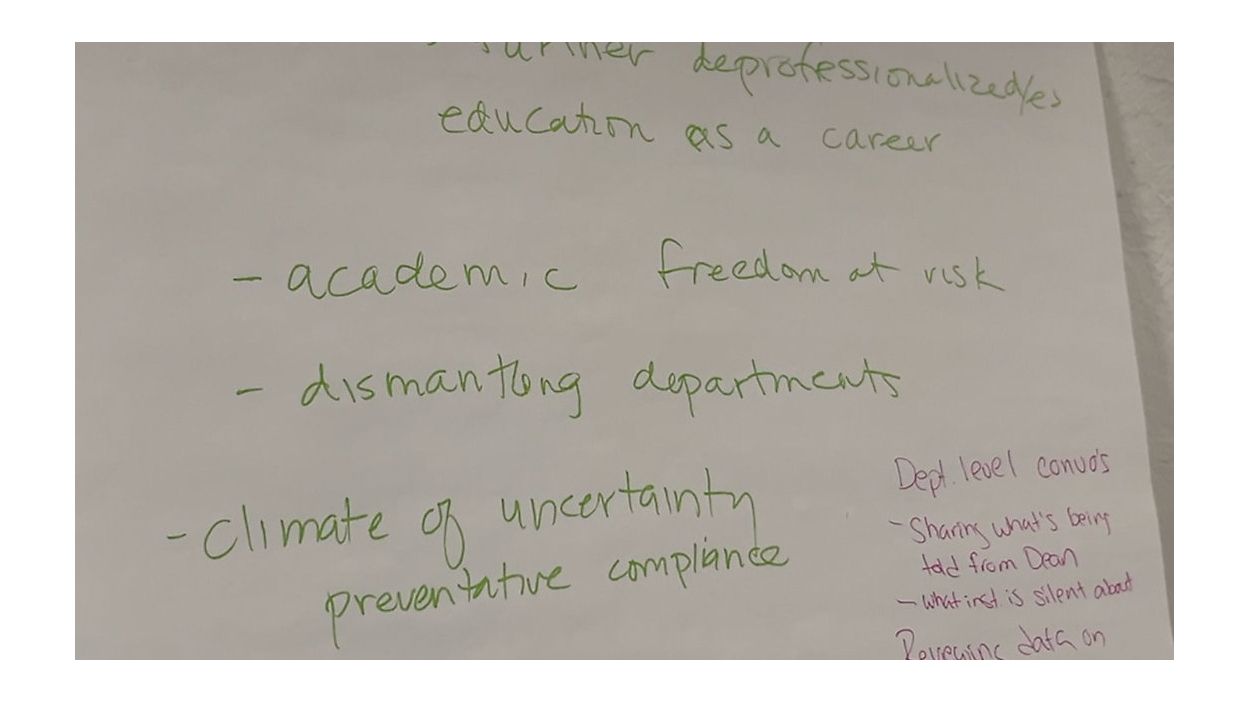 - further deprofessionalized/es
education as a career
- academic freedom at risk
- dismantling departments
- Climate of uncertainty
preventative compliance
Dept. level convo's
- Sharing what's being
told from Dean
- what inst. is silent about
Reviewing data on